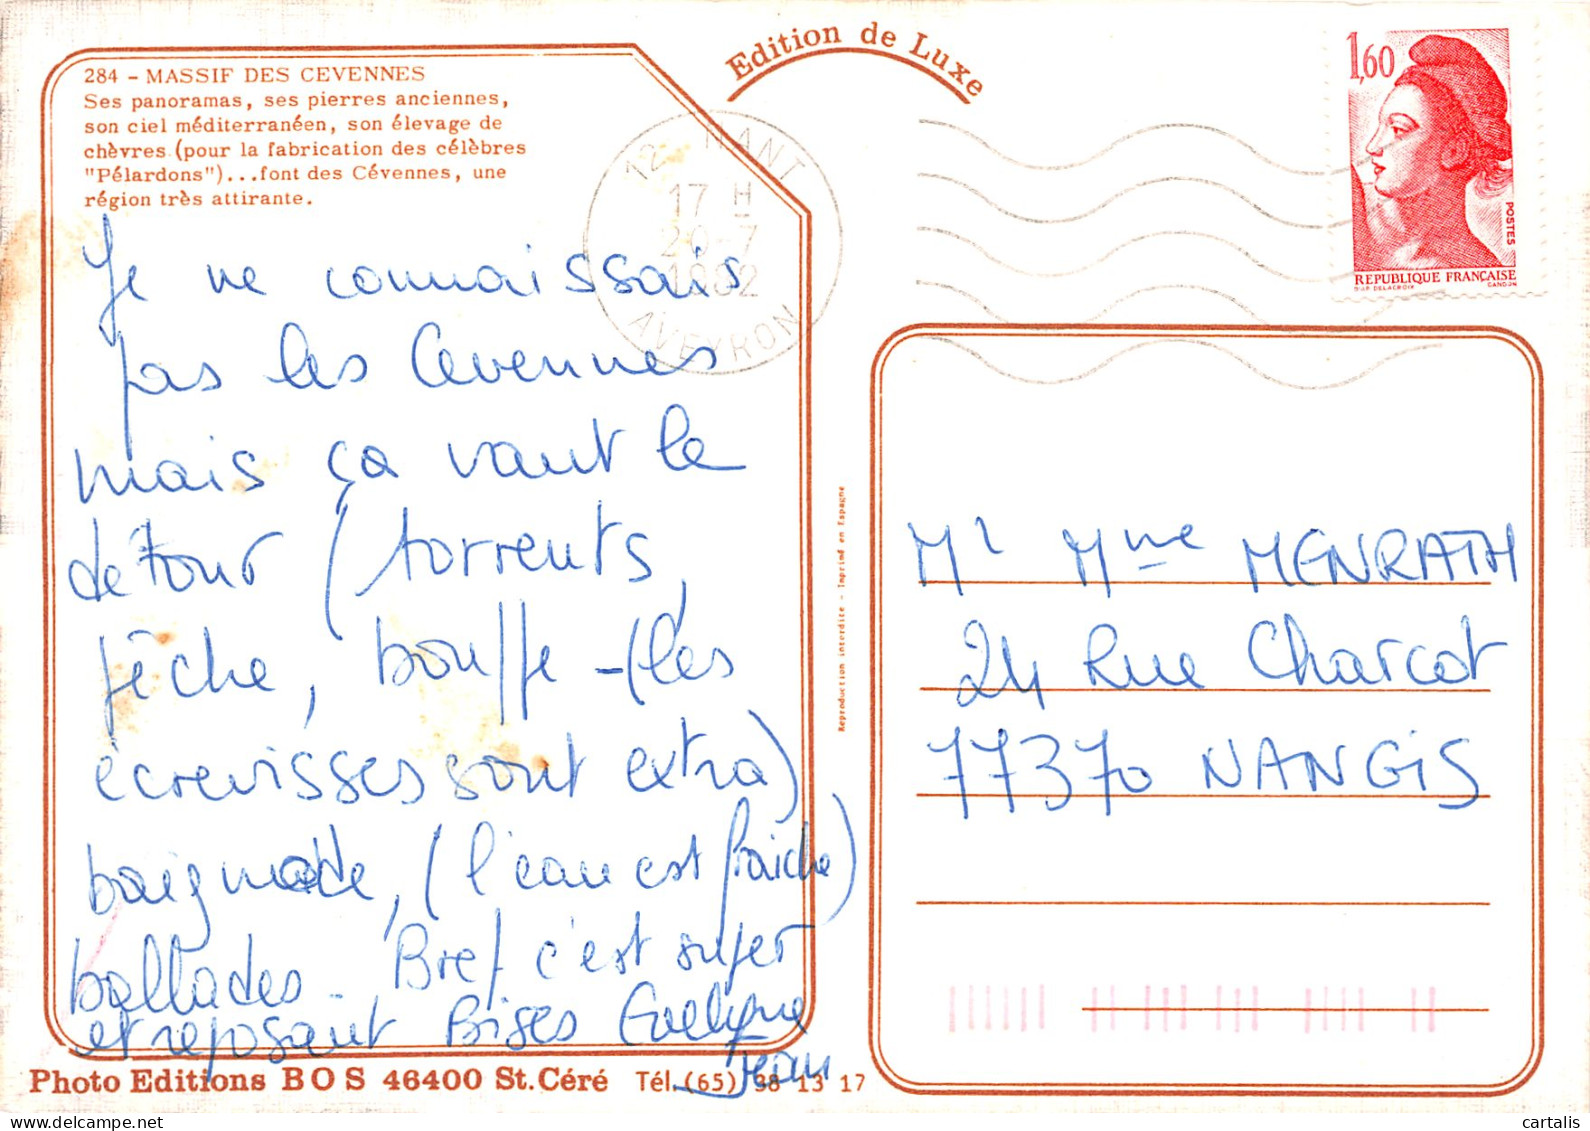 Edition de Luxe
284 - MASSIF DES CEVENNES
Ses panoramas, ses pierres anciennes,
son ciel méditerranéen, son élevage de
chèvres (pour la fabrication des célèbres
"Pélardons")...font des Cévennes, une
région très attirante.
Je ne connaissais
pas les Cevennes
mais ça vaut le
detour (torrents,
pêche, bouffe - (les
écrevisses sont extra)
baignade, (l'eau est fraiche)
ballades - Bref c'est super
et reposant Bises Evelyne
Jean
12 NANT
17 H
20-7
1982
AVEYRON
1,60
POSTES
REPUBLIQUE FRANÇAISE
D'AP DELACROIX GANDON
Reproduction interdite - Imprimé en Espagne
Mr Mme MENRATH
24 Rue Charcot
77370 NANGIS
Photo Editions BOS 46400 St. Céré Tél. (65) 38 13 17
cartalis